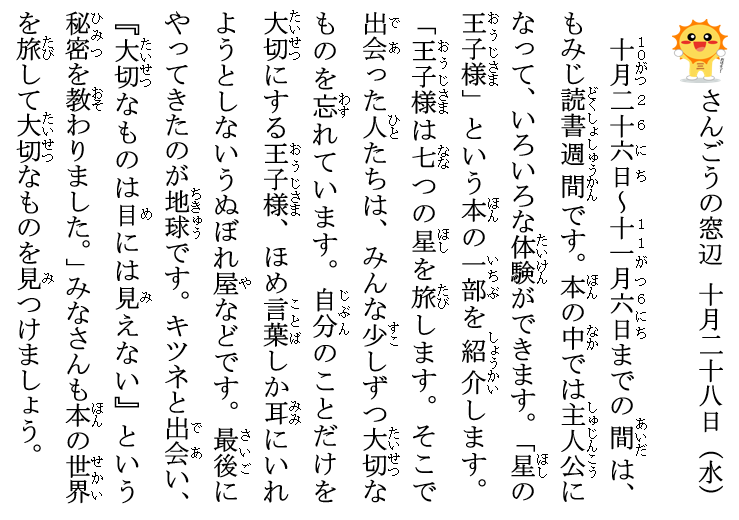 さんごうの窓辺　十月二十八日（水）
十月二十六日～十一月六日までの間は、
もみじ読書週間です。本の中では主人公に
なって、いろいろな体験ができます。「星の
王子様」という本の一部を紹介します。
「王子様は七つの星を旅します。そこで
出会った人たちは、みんな少しずつ大切な
ものを忘れています。自分のことだけを
大切にする王子様、ほめ言葉しか耳にいれ
ようとしないうぬぼれ屋などです。最後に
やってきたのが地球です。キツネと出会い、
『大切なものは目には見えない』という
秘密を教わりました。」みなさんも本の世界
を旅して大切なものを見つけましょう。